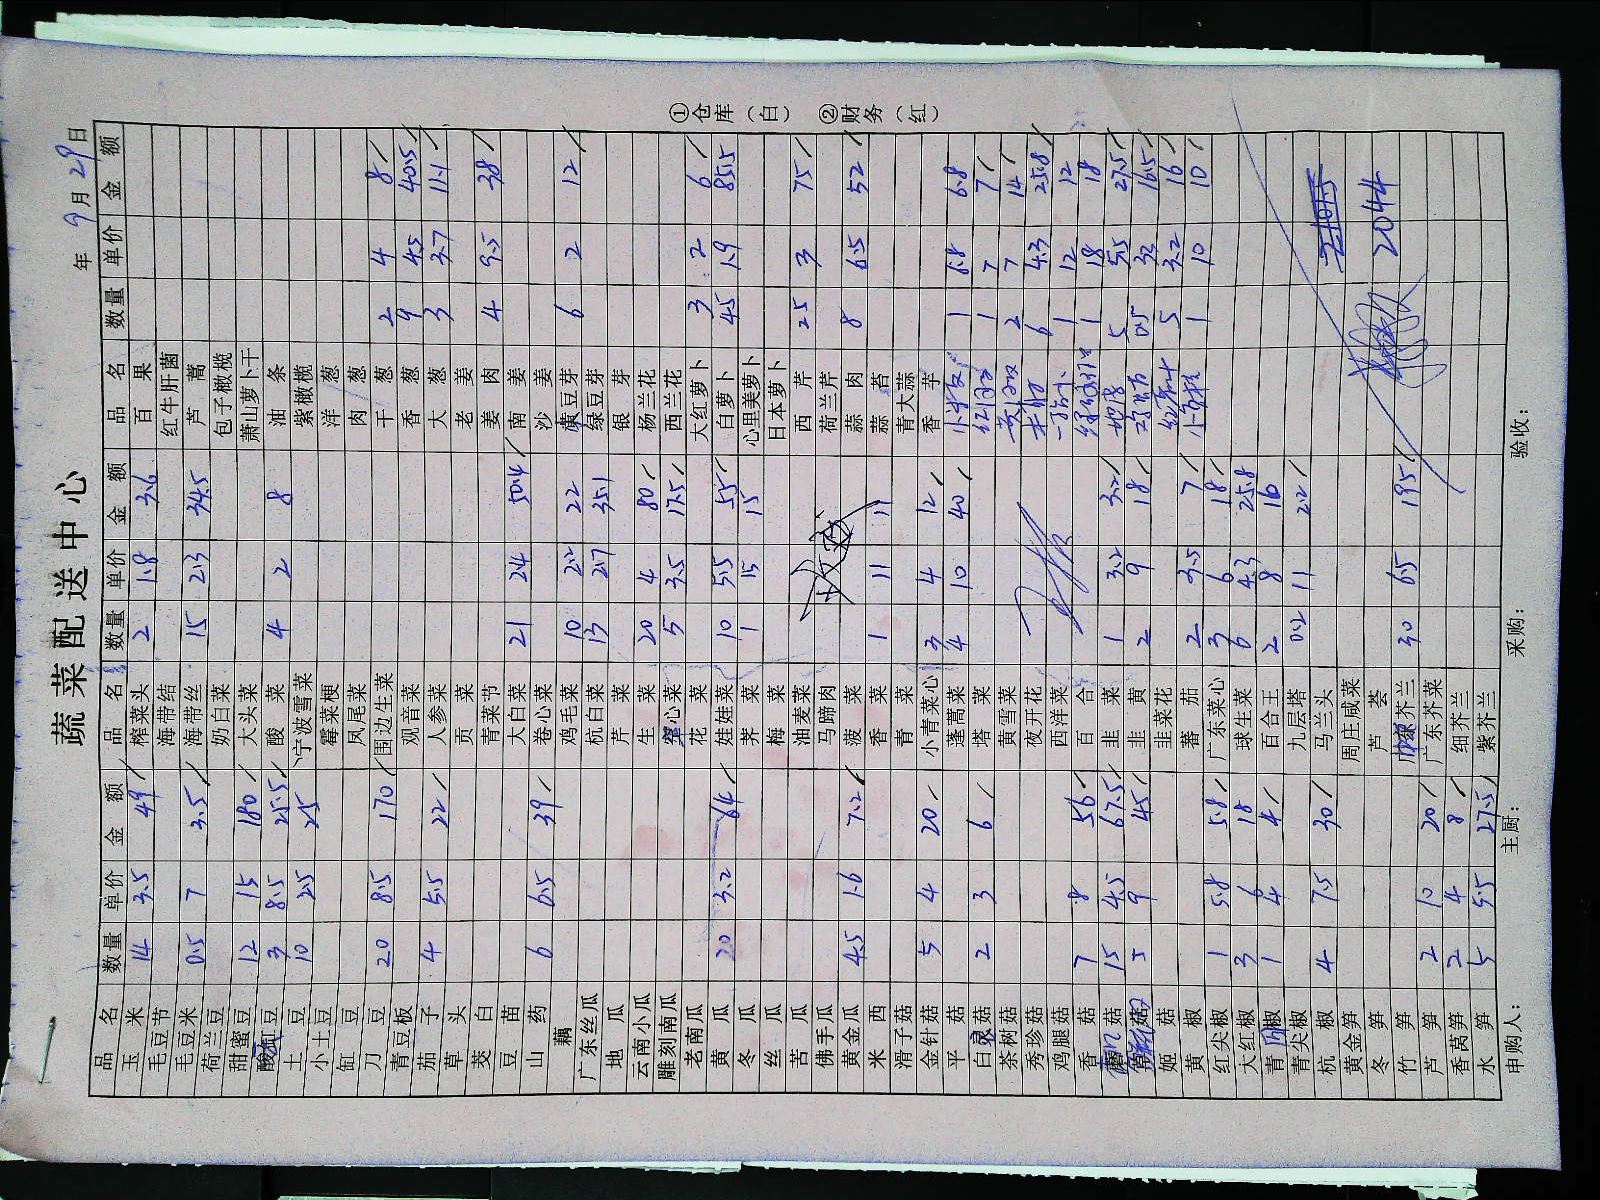 蔬菜配送中心
年 9月29日
品名 数量 单价 金额 品名 数量 单价 金额 品名 数量 单价 金额
玉米 14 3.5 49 榨菜头 2 1.8 3.6 百果
毛豆节 海带结 红牛肝菌
毛豆米 0.5 7 3.5 海带丝 15 2.3 34.5 芦蒿
荷兰豆 奶白菜 包子橄榄
甜蜜豆 12 15 180 大头菜 萧山萝卜干
豇豆 3 8.5 25.5 酸菜 4 2 8 油条
土豆 10 2.5 25 宁波雪菜 紫橄榄
小土豆 霉菜梗 洋葱
缸豆 凤尾菜 肉葱
刀豆 20 8.5 170 围边生菜 干葱 2 4 8
青豆板 观音菜 香葱 9 4.5 40.5
茄子 4 5.5 22 人参菜 大葱 3 3.7 11.1
草头 贡菜 老姜
茭白 青菜节 姜肉 4 9.5 38
豆苗 大白菜 21 2.4 50.4 南姜
山药 6 6.5 39 卷心菜 沙姜
藕 鸡毛菜 10 2.2 22 黄豆芽 6 2 12
广东丝瓜 杭白菜 13 2.7 35.1 绿豆芽
地瓜 芹菜 银芽
云南小瓜 生菜 20 4 80 杨兰花
雕刻南瓜 空心菜 5 3.5 17.5 西兰花
老南瓜 花菜 大红萝卜 3 2 6
黄瓜 20 3.2 64 娃娃菜 10 5.5 55 白萝卜 45 1.9 85.5
冬瓜 荠菜 1 15 15 心里美萝卜
丝瓜 梅菜 日本萝卜
苦瓜 油麦菜 西芹 25 3 75
佛手瓜 马蹄肉 荷兰芹
黄金瓜 4.5 1.6 7.2 菠菜 蒜肉 8 6.5 52
米西 香菜 1 11 11 蒜苔
滑子菇 青菜 青大蒜
金针菇 5 4 20 小青菜心 3 4 12 香芋
平菇 蓬蒿菜 4 10 40 1 6.8 6.8
白灵菇 2 3 6 塔菜 1 7 7
茶树菇 黄雪菜 2 7 14
秀珍菇 夜开花 6 4.3 25.8
鸡腿菇 西洋菜 1 12 12
香菇 7 8 56 百合 1 18 18
菇 15 4.5 67.5 韭菜 1 3.2 3.2 5 5.5 27.5
菇 5 9 45 韭黄 2 9 18 0.5 33 16.5
姬菇 韭菜花 5 3.2 16
黄椒 蕃茄 2 3.5 7 1 10 10
红尖椒 1 5.8 5.8 广东菜心 3 6 18
大红椒 3 6 18 球生菜 6 4.3 25.8
青椒 1 4 4 百合王 2 8 16
青尖椒 九层塔 0.2 11 2.2
杭椒 4 7.5 30 马兰头
黄金笋 周庄咸菜
冬笋 芦荟 2044
竹笋 芥兰 30 6.5 195
芦笋 2 10 20 广东芥菜
香莴笋 2 4 8 细芥兰
水笋 5 5.5 27.5 紫芥兰
申购人： 主厨： 采购： 验收：
①仓库（白） ②财务（红）